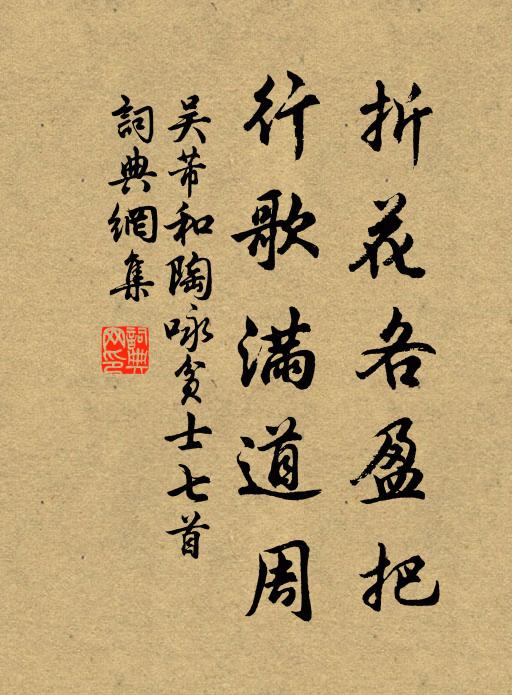 折花各盈把
行歌满道周
吴芾和陶咏贫士七首
詞典網集
詞典网印